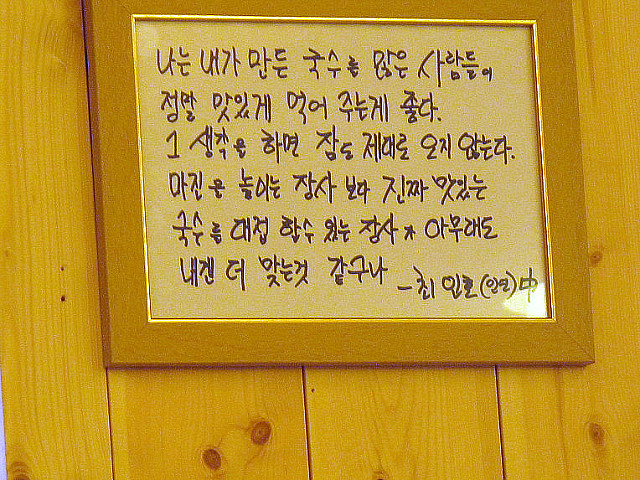 나는 내가 만든 국수를 많은 사람들이
정말 맛있게 먹어 주는게 좋다.
그 생각을 하면 잠도 제대로 오지 않는다.
마진을 높이는 장사 보다 진짜 맛있는
국수를 대접 할수 있는 장사가 아무래도
내겐 더 맞는것 같구나
-최 인호 ( ) 中